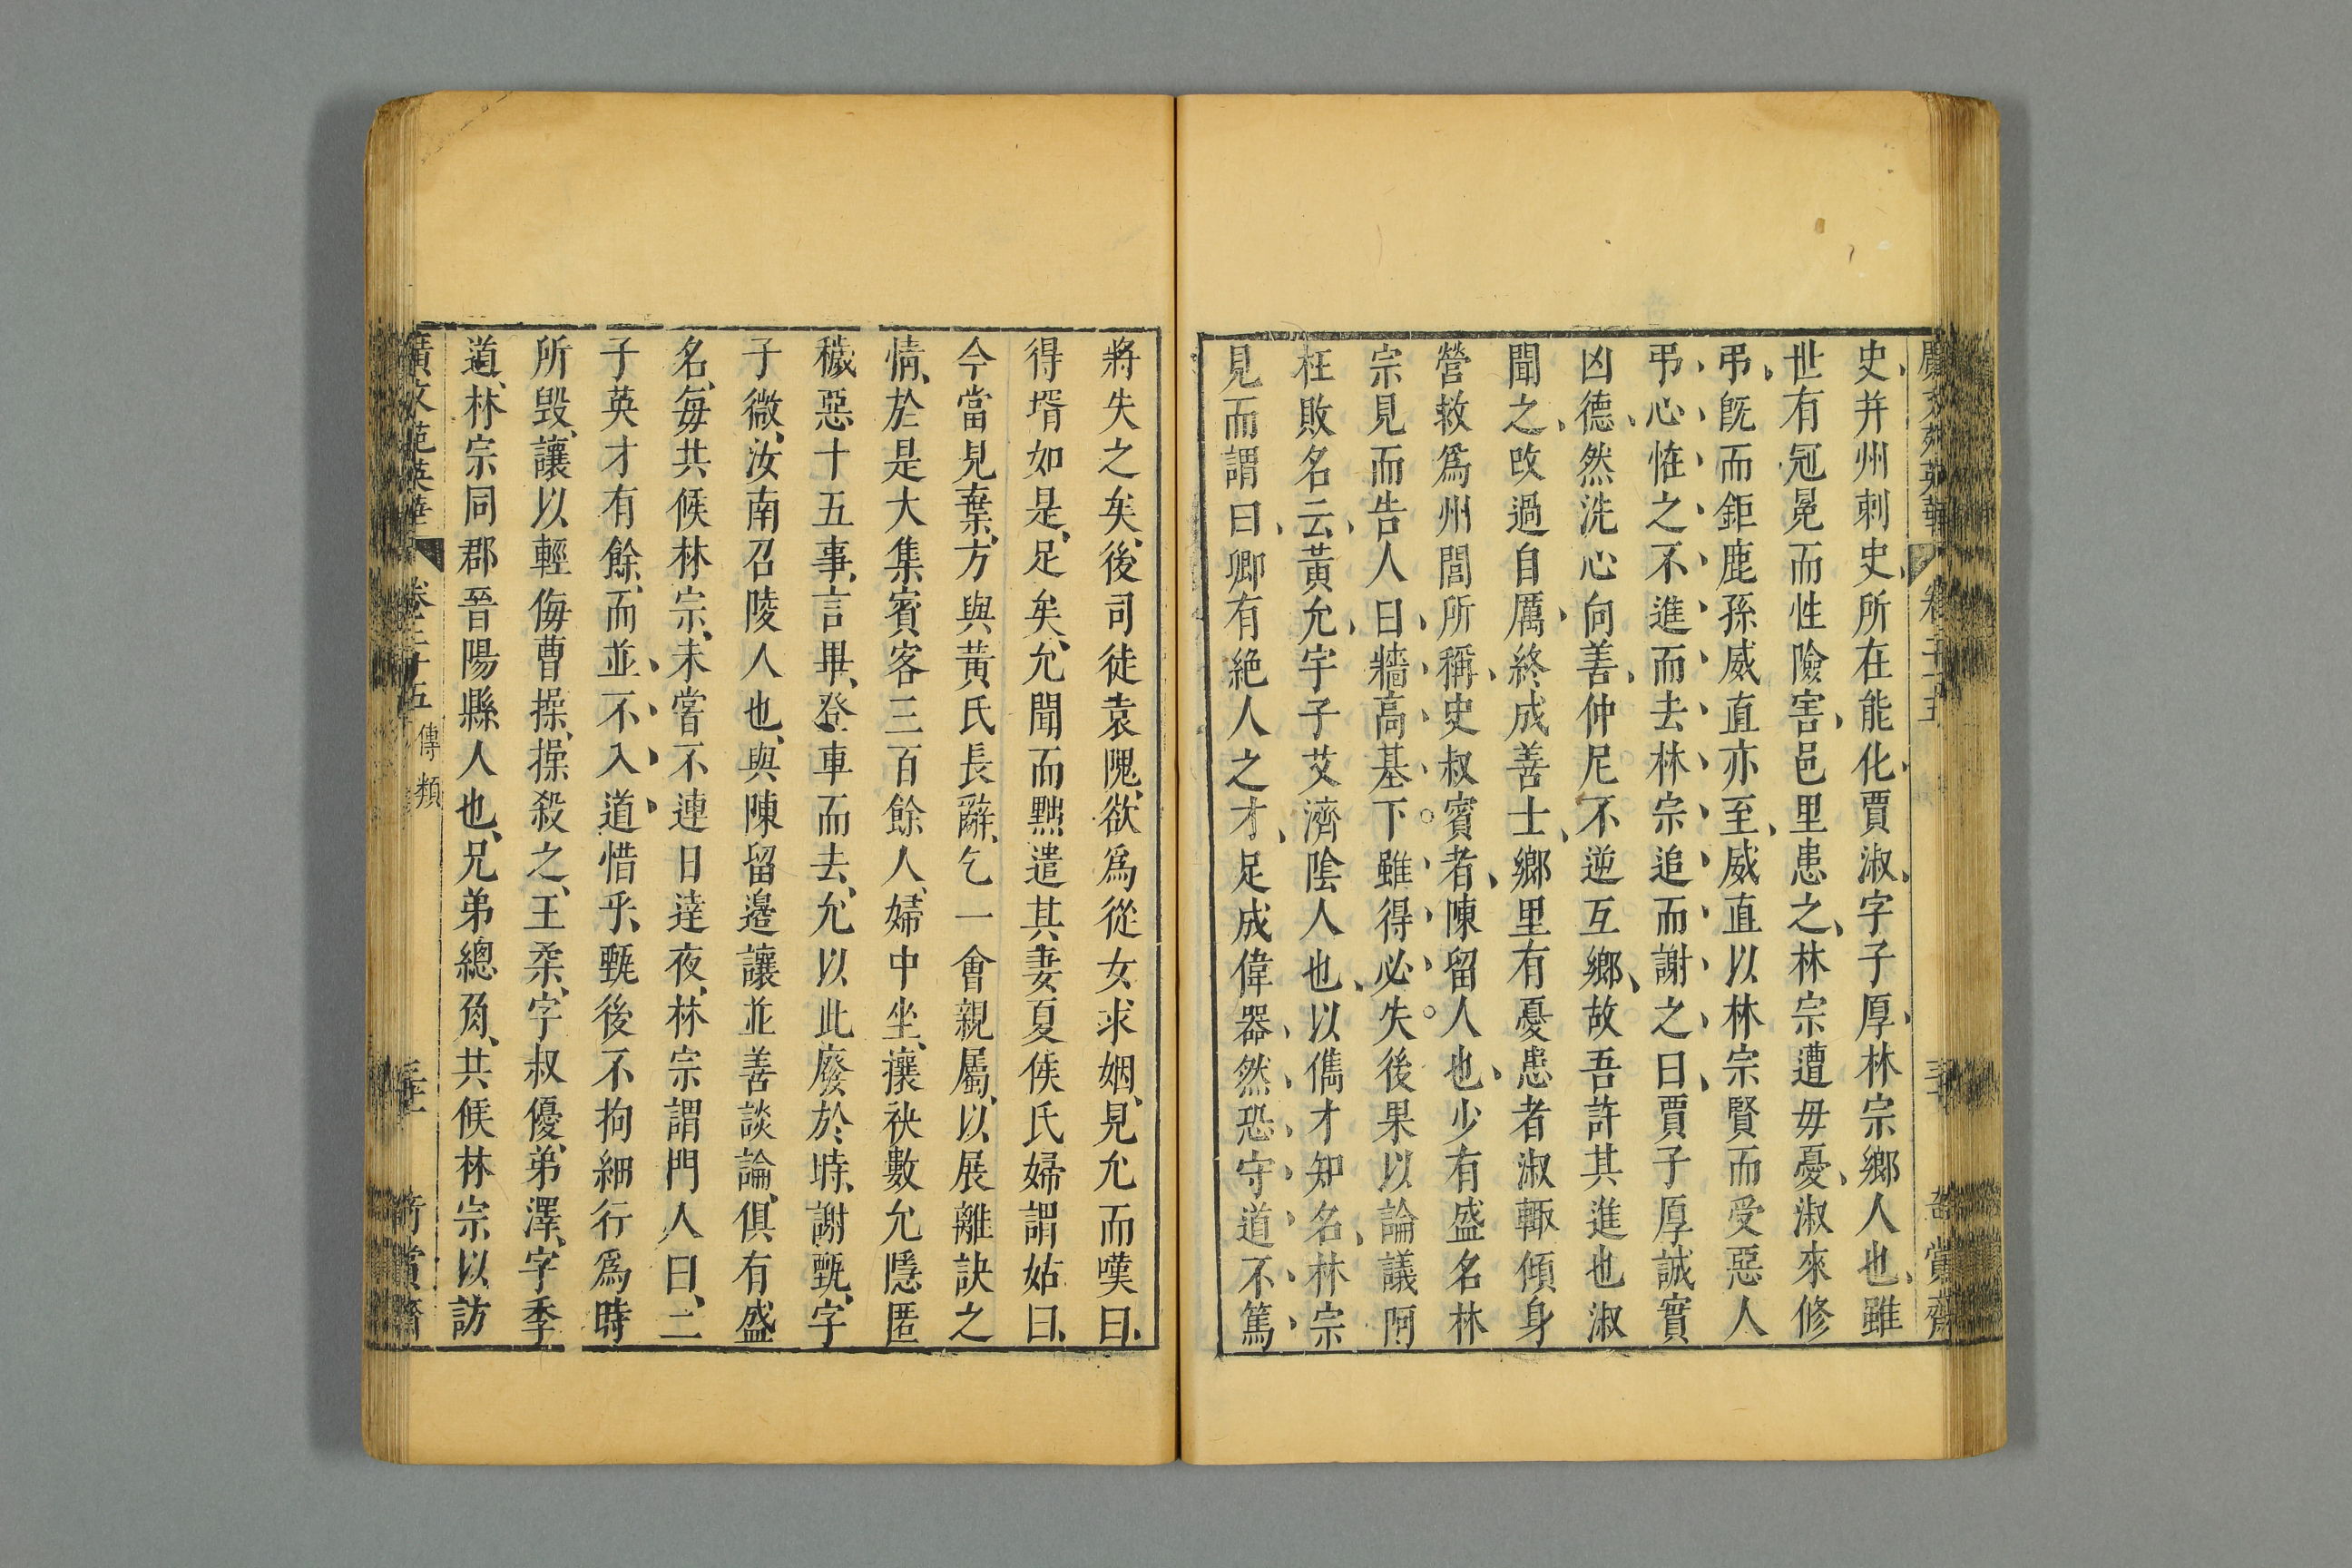 史并州刺史所在能化賈淑字子厚林宗鄉人也雖
世有冠冕而性險害邑里患之林宗遭毋憂淑來修
弔旣而鉅鹿孫威直亦至威直以林宗賢而受惡人
弔心恠之不進而去林宗追而謝之曰賈子厚誠實
凶德然洗心向善仲尼不逆互鄉故吾許其進也淑
聞之改過自厲終成善士鄉里有憂患者淑輙傾身
營救爲州閭所稱史叔賓者陳留人也少有盛名林
宗見而告人曰牆高基下雖得必失後果以論議阿
枉敗名云黃允字子艾濟陰人也以儁才知名林宗
見而謂曰卿有絶人之才足成偉器然恐守道不篤
將失之矣後司徒袁隗欲爲從女求姻見允而嘆曰
得壻如是足矣允聞而黜遣其妻夏侯氏婦謂姑曰
今當見棄方與黃氏長辭乞一會親屬以展離訣之
情於是大集賓客三百餘人婦中坐攘袂數允隱匿
穢惡十五事言畢登車而去允以此廢於時謝甄字
子微汝南召陵人也與陳留邉讓並善談論俱有盛
名每共候林宗未嘗不連日達夜林宗謂門人曰二
子英才有餘而並不入道惜乎甄後不拘細行爲時
所毀讓以輕侮曹操操殺之王柔字叔優弟澤字季
道林宗同郡晉陽縣人也兄弟總角共候林宗以訪
廣文苑英華 卷二十五 傳類